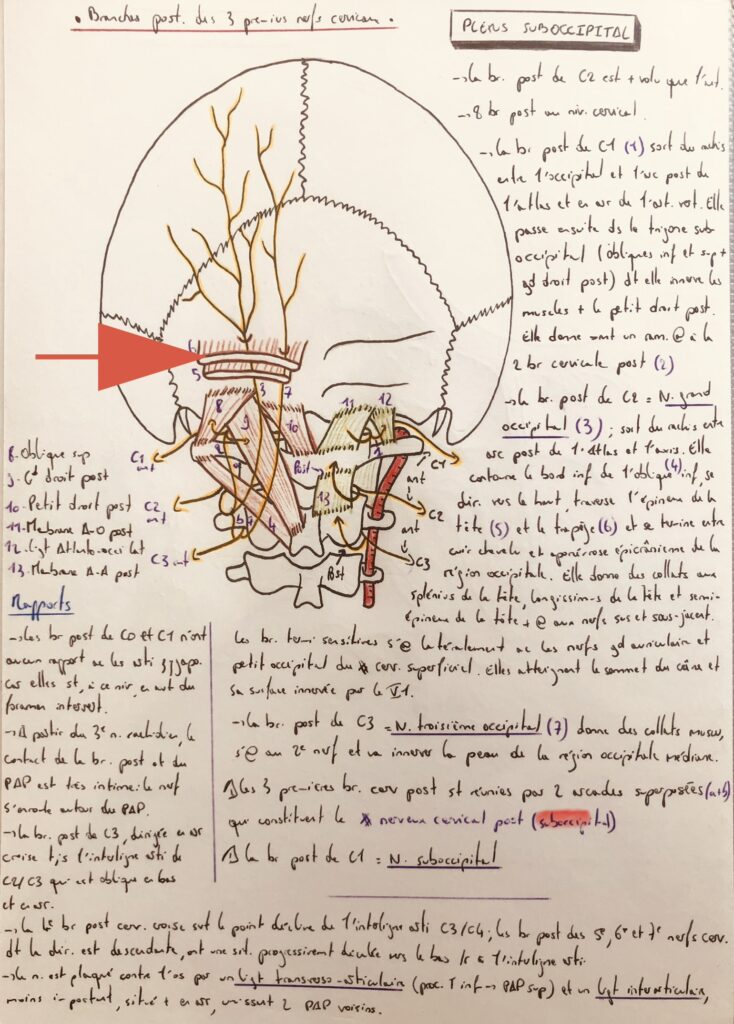 • Branches post. des 3 premiers nerfs cervicaux.
PLEXUS SUBOCCIPITAL
→ la br. post de C2 est + volu que l'ant.
→ 8 br post au niv. cervical.
→ la br post de C1 (1) sort du rachis
entre l'occipital et l'arc post de
l'atlas et en arr de l'art. vert. Elle
passe ensuite ds le trigone sub
occipital (obliques inf et sup +
gd droit post) dt elle innerve les
muscles + le petit droit post.
Elle donne un ram. @ à la
2 br cervicale post (2)
→ la br. post de C2 = N. grand
occipital (3) ; sort du rachis entre
arc post de l'Atlas et l'axis. Elle
contourne le bord inf de l'oblique (4) inf, se
dir. vers le haut, traverse l'épineux de la
tête (5) et le trapèze (6) et se termine entre
cuir chevelu et aponévrose épicrânienne de la
région occipitale. Elle donne des collats aux
splénius de la tête, longissimus de la tête et semi-
épineux de la tête + @ aux nerfs sus et sous-jacent.
les br. termi sensitives s'@ latéralement ac les nerfs gd auriculaire et
petit occipital du cerv. superficiel. Elles atteignent le sommet du crâne et
sa surface innervée par le V1.
→ la br. post de C3 = N. troisième occipital (7) donne des collats muscu,
s'@ au 2e nerf et va innerver la peau de la région occipitale médiane.
les 3 premières br. cerv post st réunies par 2 arcades superposées (a+b)
qui constituent le nerveux cervical post (suboccipital)
la br post de C1 = N. suboccipital
6
5
3
7
8
9
10
11
12
1
2
4
13
Post
Post
C1
ant
C2
ant
C3 ant
C1
ant
C2
ant
C3
8. Oblique sup
9. Gd droit post
10. Petit droit post
11. Membrane A-O post
12. Ligt Atlanto-occi lat
13. Membrane A-A post
Rapports
→ les br post de C0 et C1 n'ont
aucun rapport ac les arti zygapo.
car elles st, à ce niv, en avt du
foramen intervert.
→ A partir du 3e n. rachidien, le
contact de la br. post et du
PAP est très intime : le nerf
s'enroule autour du PAP.
→ la br. post de C3, dirigée en arr
croise tjs l'interligne arti de
C2/C3 qui est oblique en bas
et en arr.
→ la 4e br post cerv. croise svt le point déclive de l'interligne arti C3/C4 ; les br post des 5e, 6e et 7e nerfs cerv.
dt la dir. est descendante, ont une sit. progressivement décalée vers le bas /r à l'interligne arti.
→ le n. est plaqué contre l'os par un ligt transverso-articulaire (proc. T inf → PAP sup) et un ligt interarticulaire,
moins important, situé + en arr, unissant 2 PAP voisins.